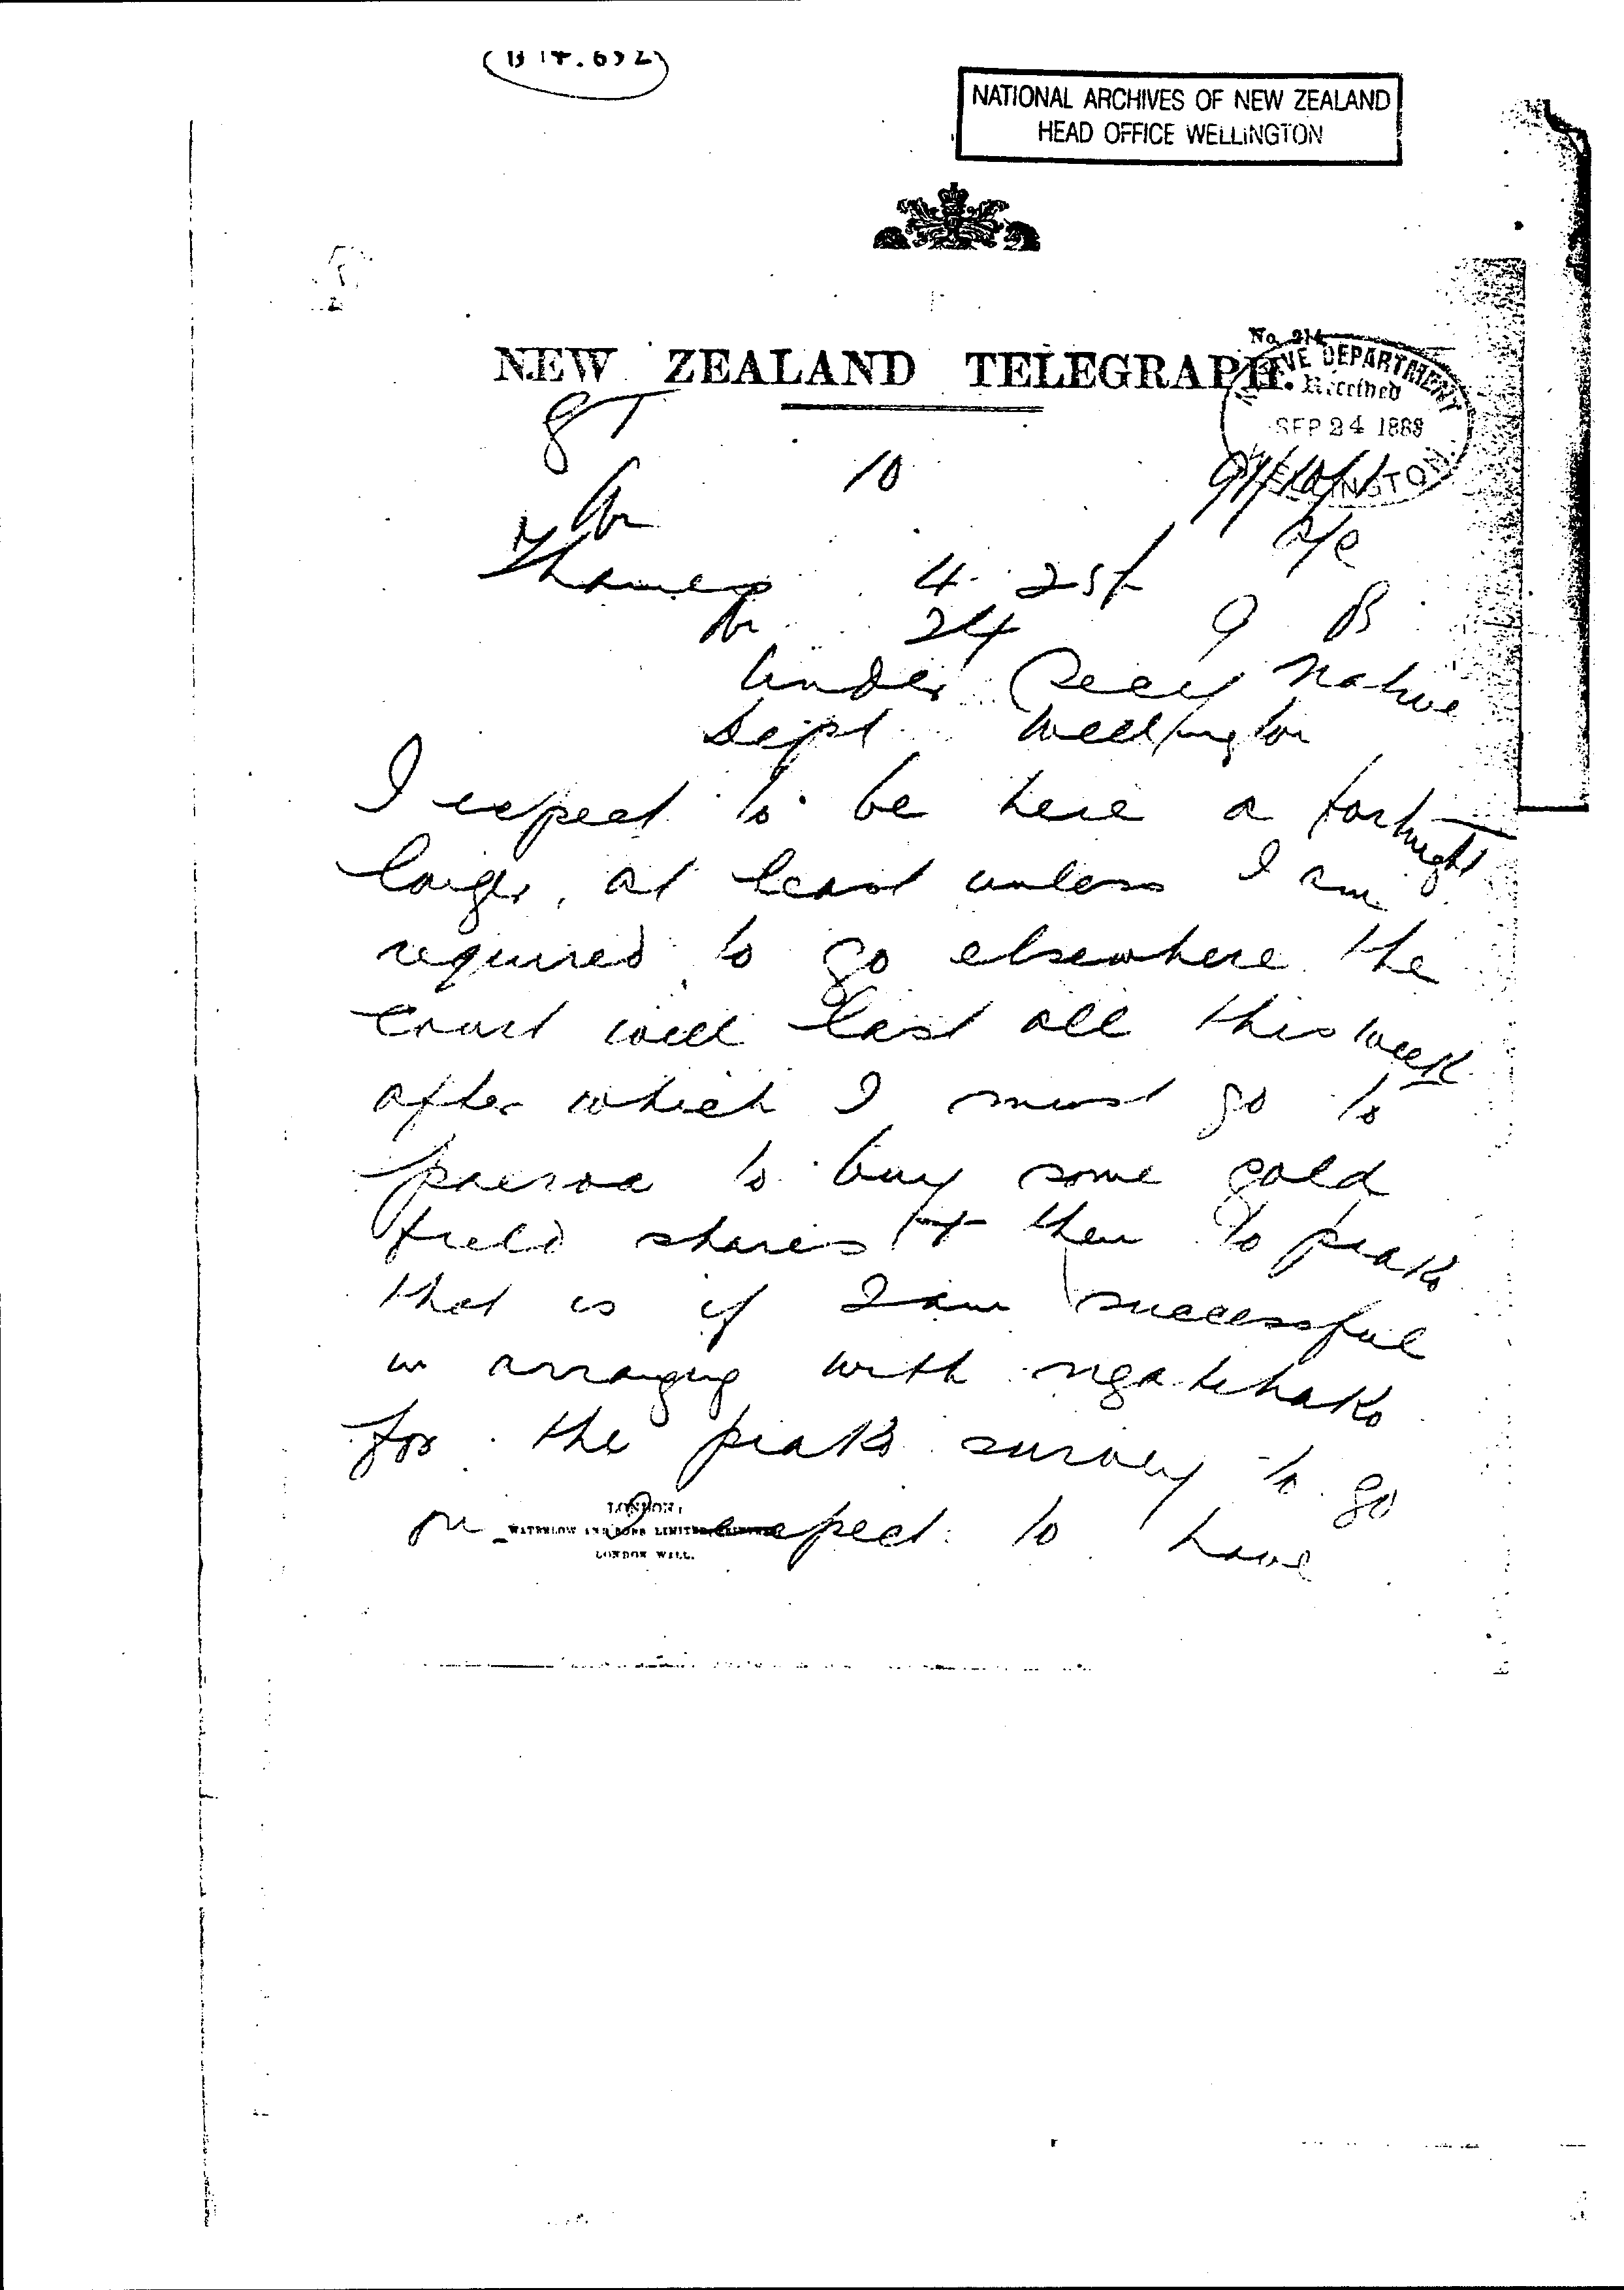 NATIONAL ARCHIVES OF NEW ZEALAND
HEAD OFFICE WELLINGTON
No. 214
NEW ZEALAND TELEGRAPH.
NATIVE DEPARTMENT
Received
SEP 24 1888
WELLINGTON
10
Thames 4. 25
24 9 B
Under Secy Native
Dept Wellington
I expect to be here a fortnight
longer, at least unless I am
required to go elsewhere the
Court will last all this week
after which I must go to
paeroa to buy some gold
field shares & then to piako
that is if I am successful
in arranging with ngatihako
for the piako survey to go
on I expect to have
LONDON:
WATERLOW AND SONS LIMITED
LONDON WALL.